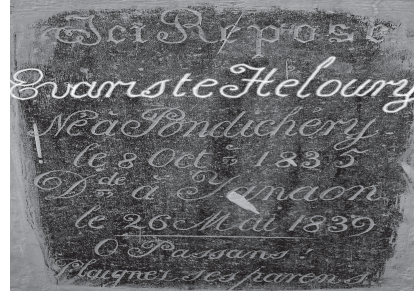 Ici Repose
Evariste Heloury
Né à Pondichéry
le 8 Oct.ⁿ 1835
D.dé à Yanaon
le 26 Mai 1839
O Passans !
Plaignez ses parens